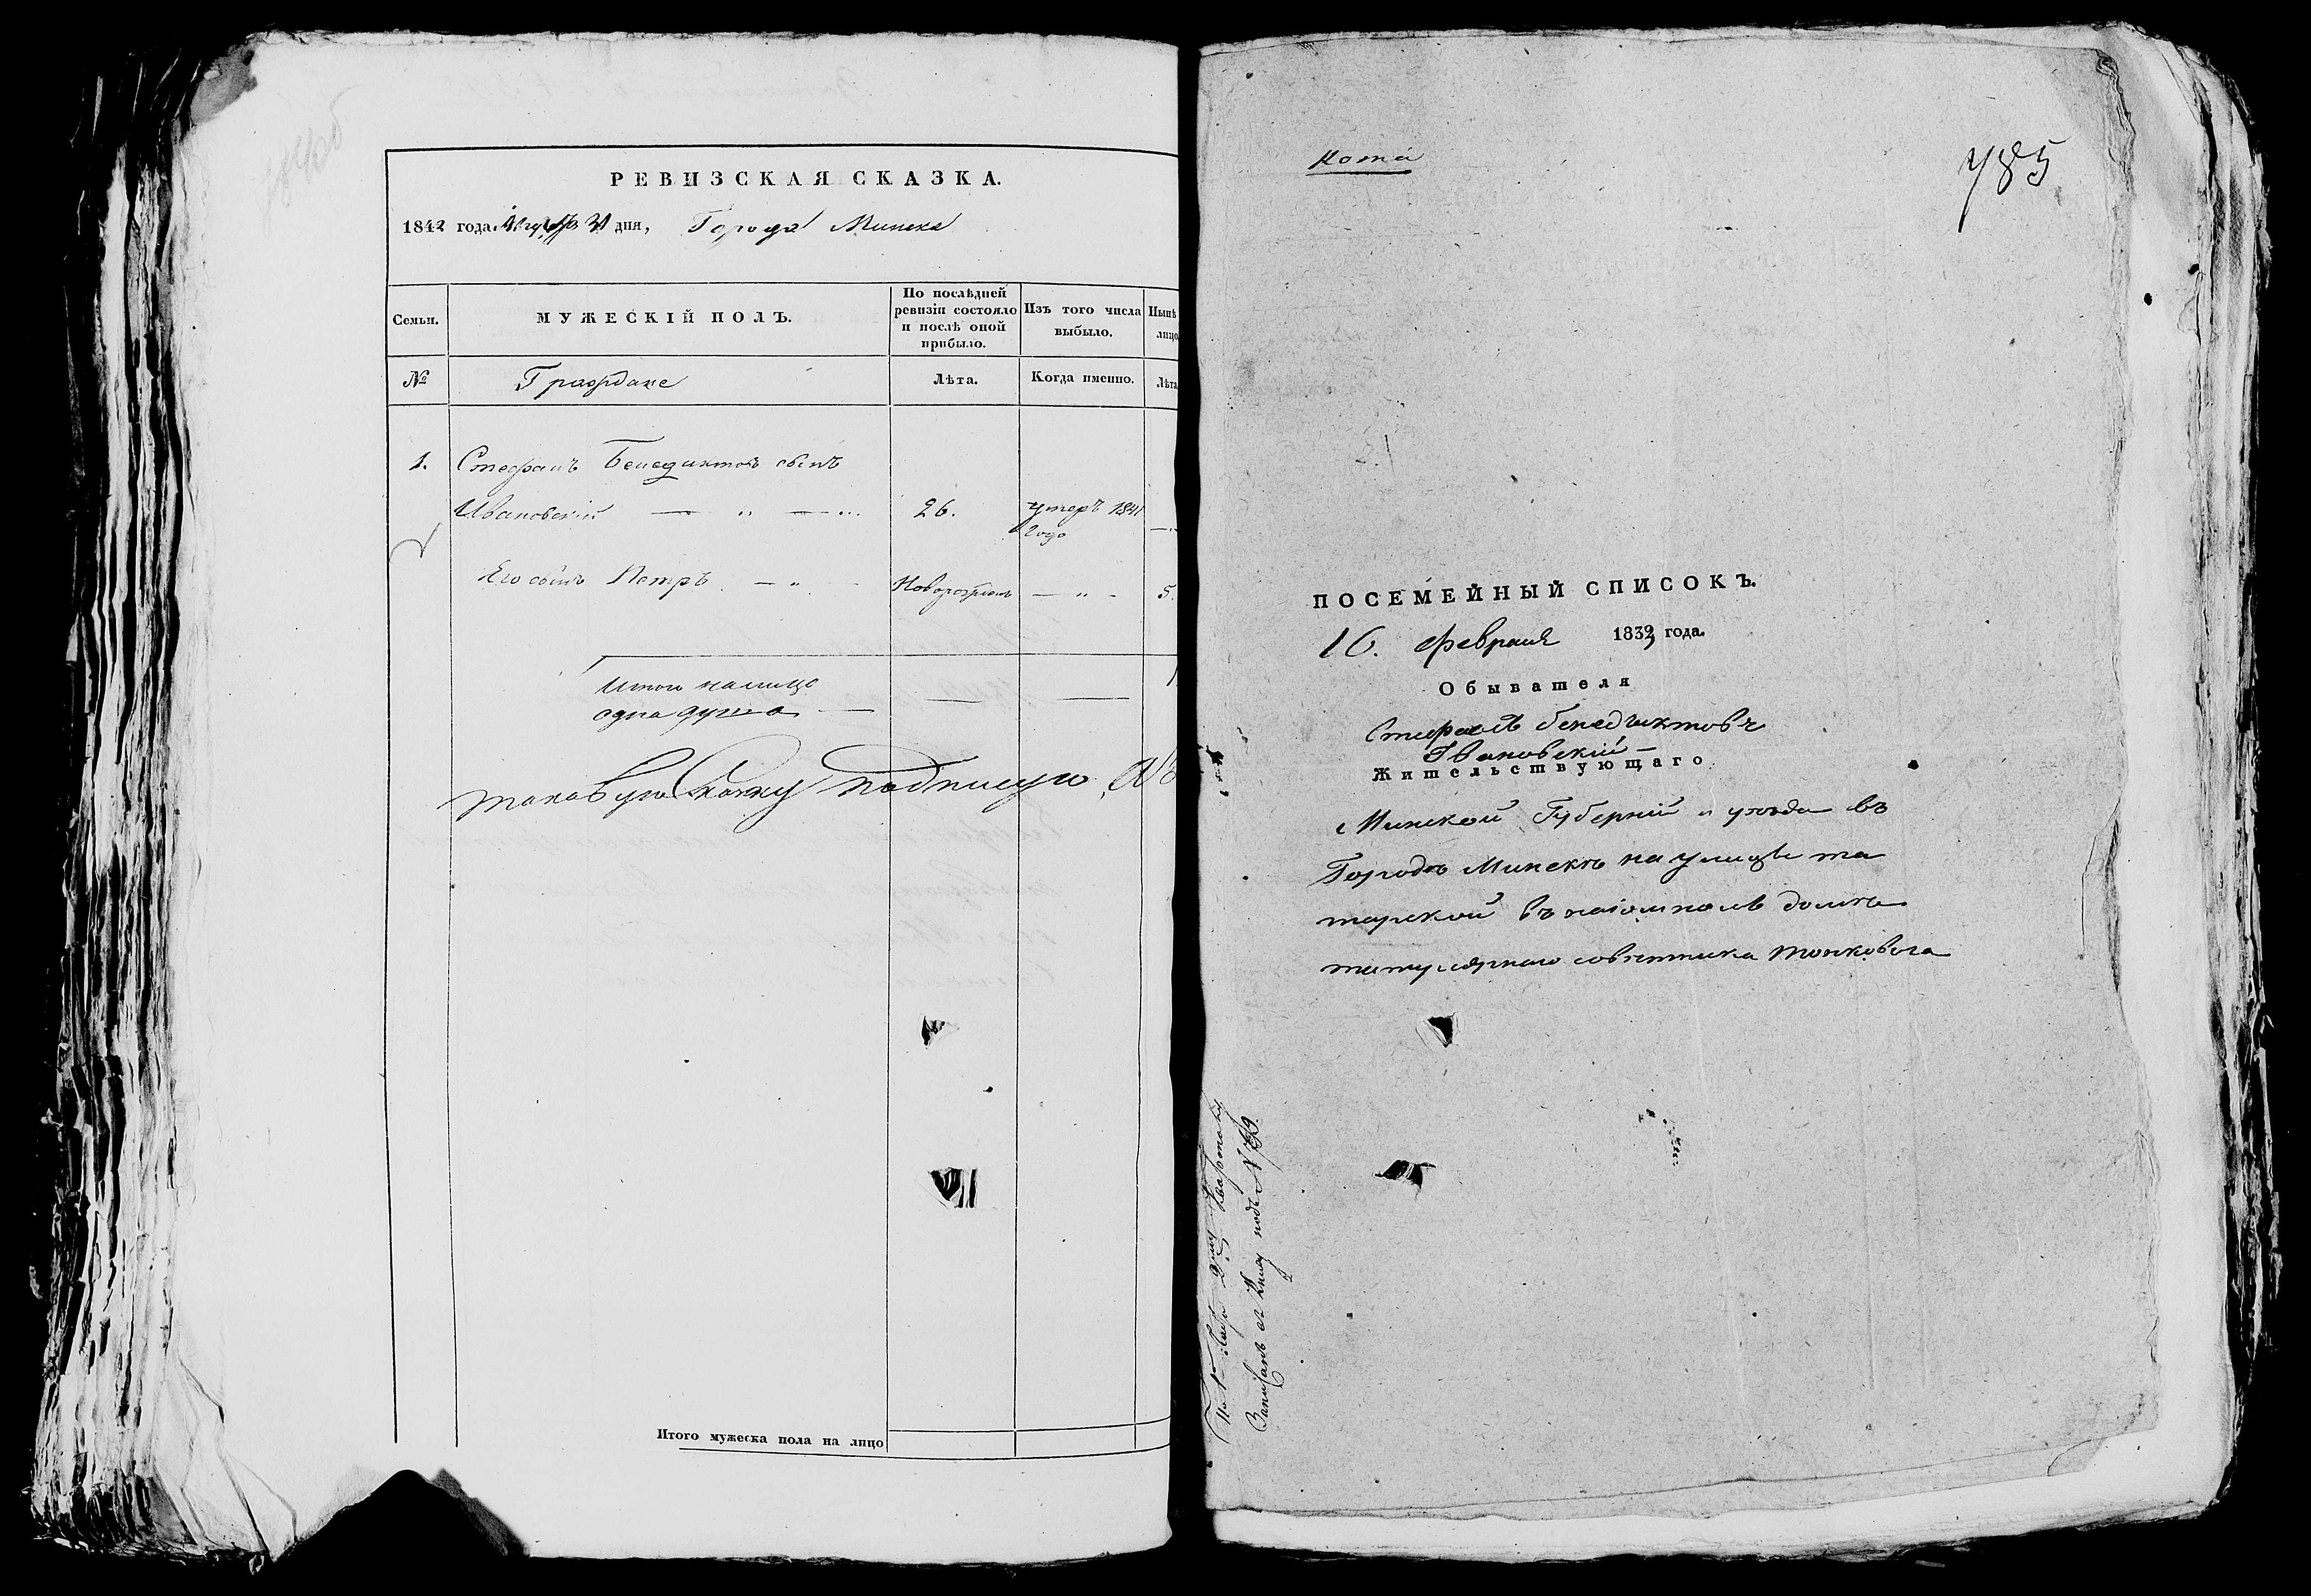 РЕВИЗСКАЯ СКАЗКА.
1842 года дня, Города Минска
Семьи.
МУЖЕСКІЙ ПОЛЪ.
По послѣдней ревизіи состояло и послѣ оной прибыло.
Изъ того числа выбыло.
Нынѣ лицо
№
Граждане
Лѣта.
Когда именно.
Лѣта
1. Стефанъ Бенедиктовъ сынъ
Ивановскій — „ — 26. умеръ 1841 года
Его сынъ Петръ — „ — Новорожден — „ - 5.
Итого налицо
одна душа
таковую Сказку подписую
Итого мужеска пола на лицо
785
ПОСЕМЕЙНЫЙ СПИСОКЪ.
16. Февраля 1832 года.
Обывателя
Стефанъ Бенедиктовъ
Ивановскій —
Жительствующаго
Минской Губерніи и уѣзда въ
Городѣ Минскѣ на улицѣ та
тарской въ домѣ
титулярнаго совѣтника
По 1й Части 2му Кварталу
Записанъ въ Книгу подъ N